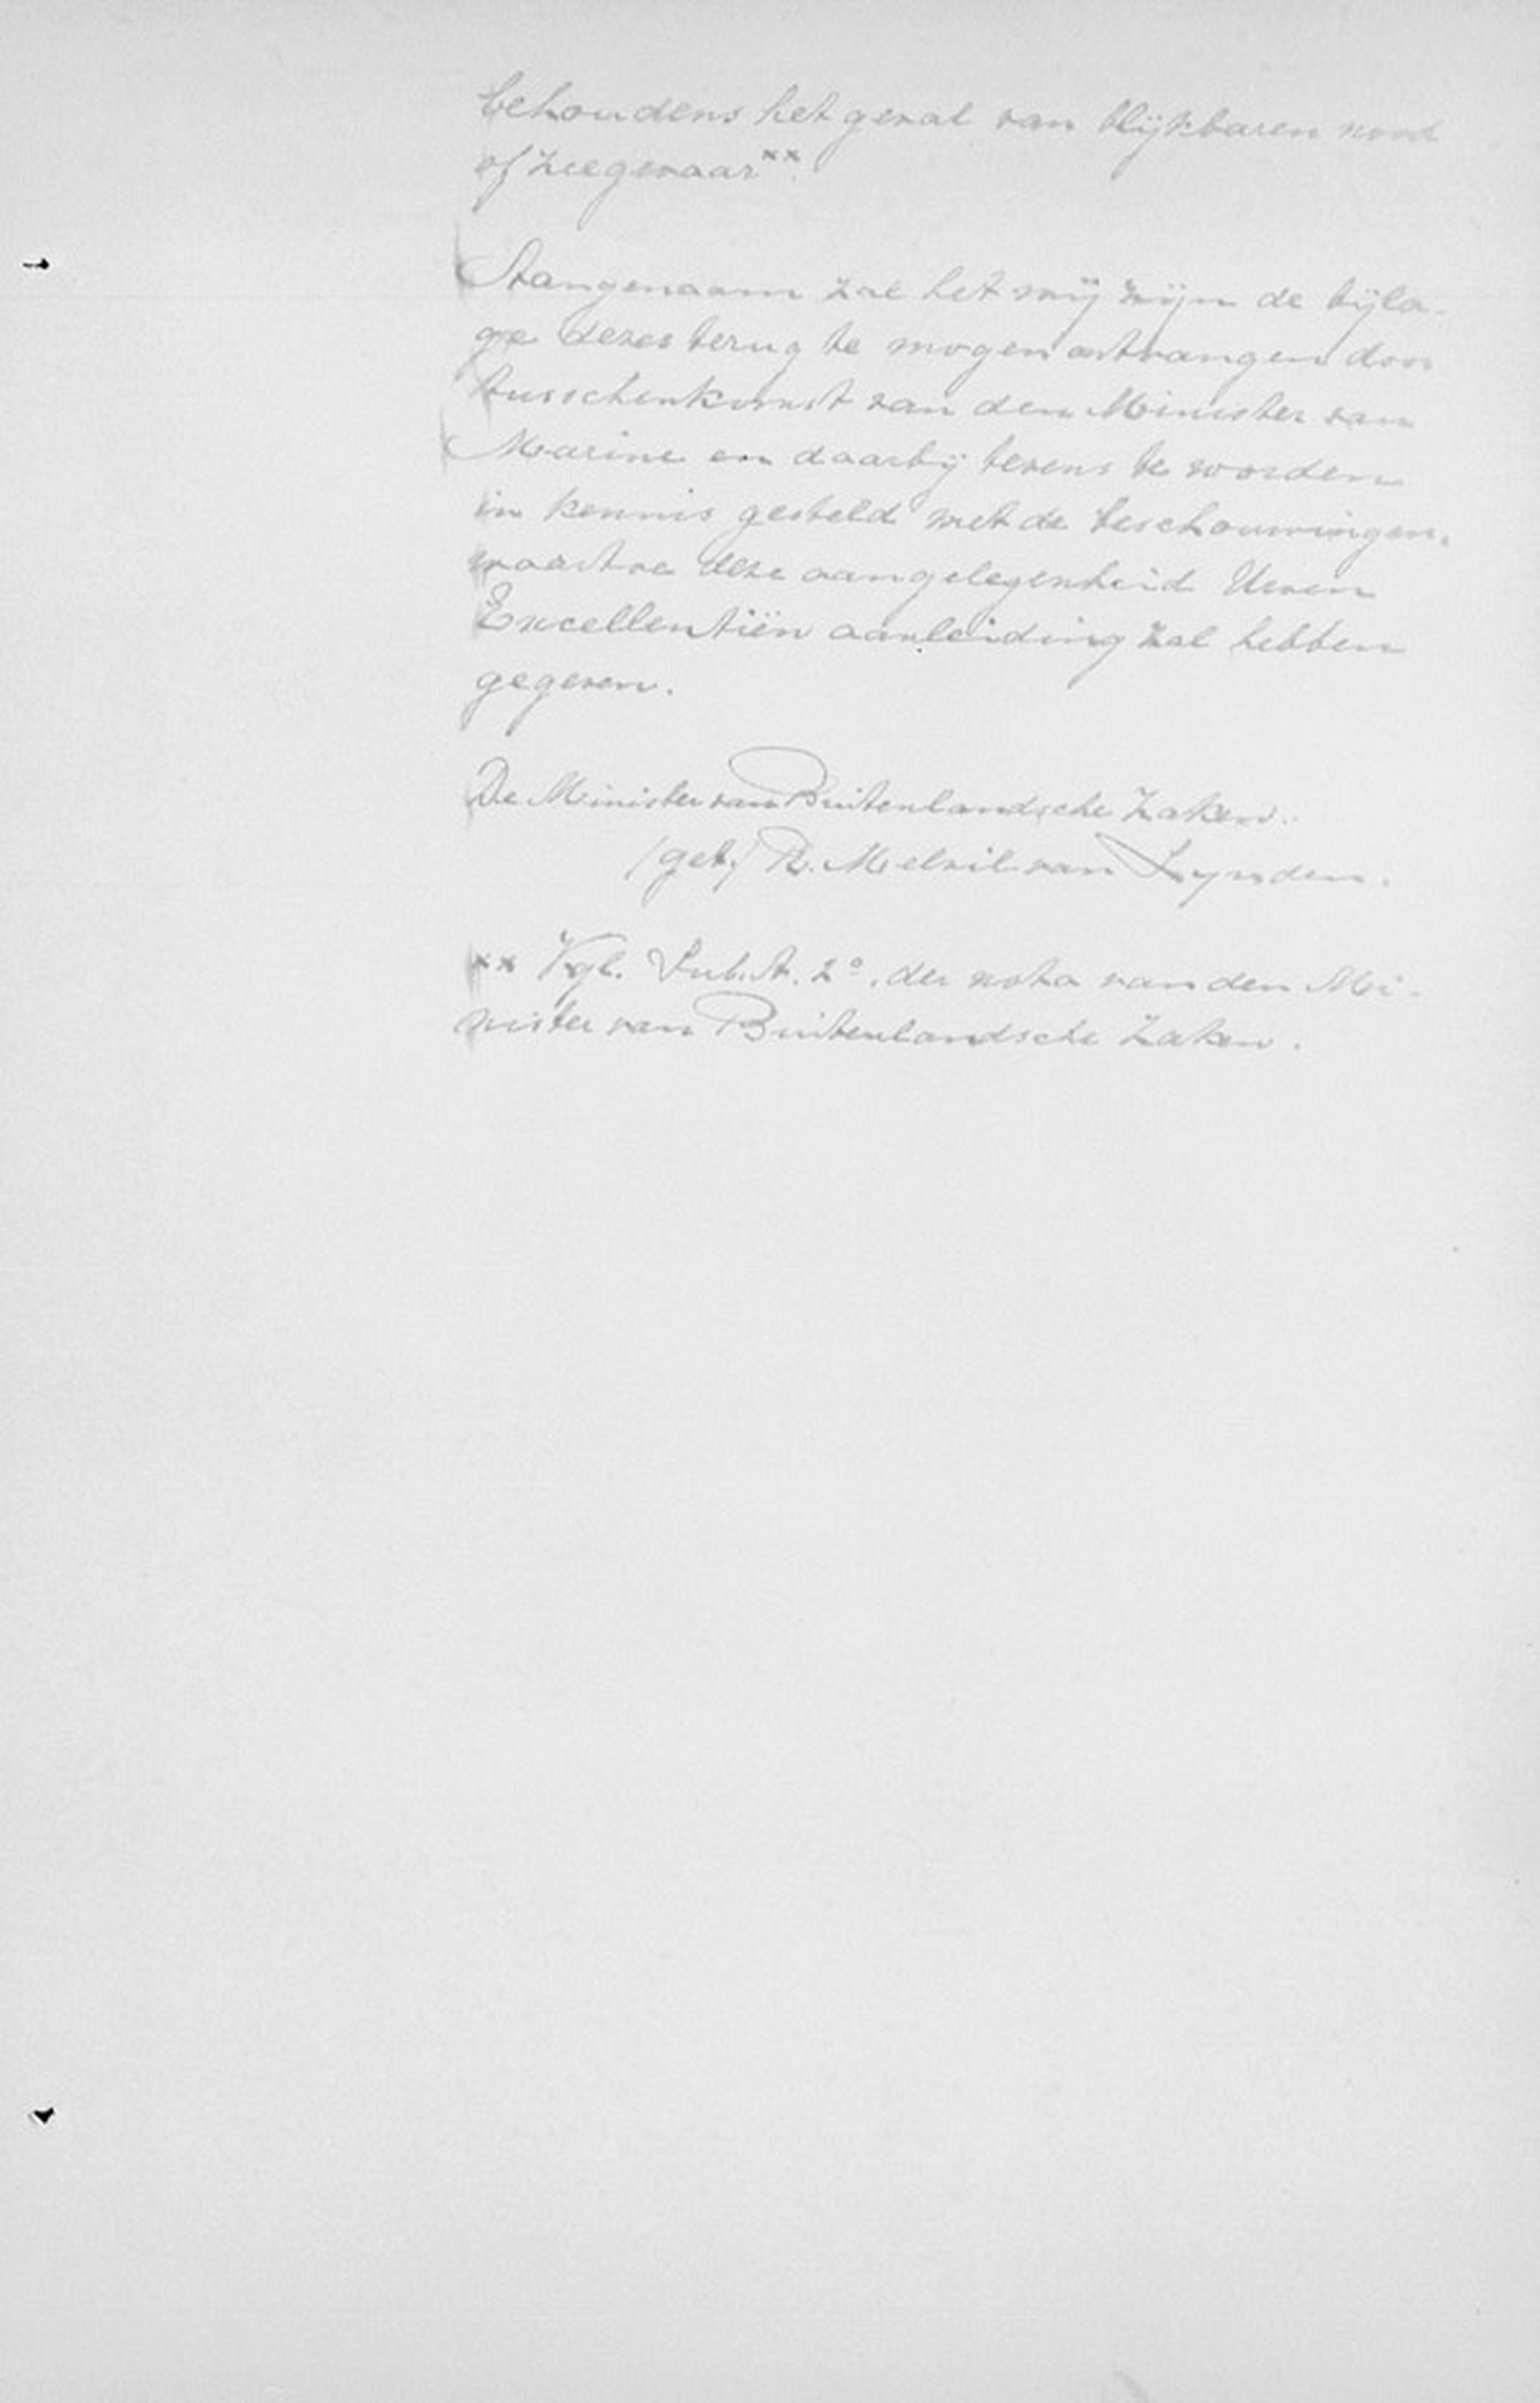 behoudens het geval van blijkbaren nood
of zeegevaar xx.
Aangenaam zal het mij zijn de bijla-
ge dezes terug te mogen ontvangen door
tusschenkomst van den Minister van
Marine en daarbij tevens te worden
in kennis gesteld met de beschouwingen,
waartoe deze aangelegenheid Uwen
Excellentiën aanleiding zal hebben
gegeven.
De Minister van Buitenlandsche Zaken.
(get.) R. Melvil van Lynden.
xx Vgl. Sub. A. 2º. der nota van den Mi-
nister van Buitenlandsche Zaken.